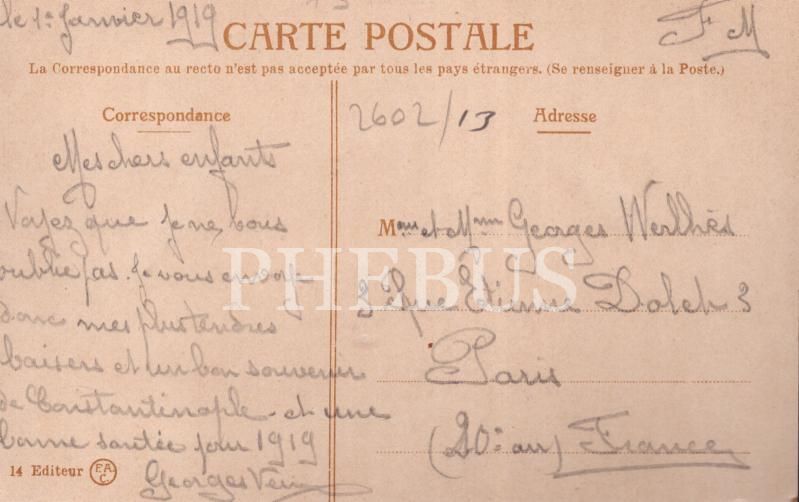 le 1er Janvier 1919
F M
CARTE POSTALE
La Correspondance au recto n'est pas acceptée par tous les pays étrangers. (Se renseigner à la Poste.)
Correspondance
Mes chers enfants
Voyez que je ne vous
oublie pas. Je vous envoy
donc mes plus tendres
baisers et un bon souvenir
de Constantinople et une
bonne santée pour 1919
Georges
14 Editeur F.A.C.
2602/13
Adresse
Mme et Mmm Georges
3 Rue Etienne Dolet 3
Paris
(20e arr) France
PHEBUS